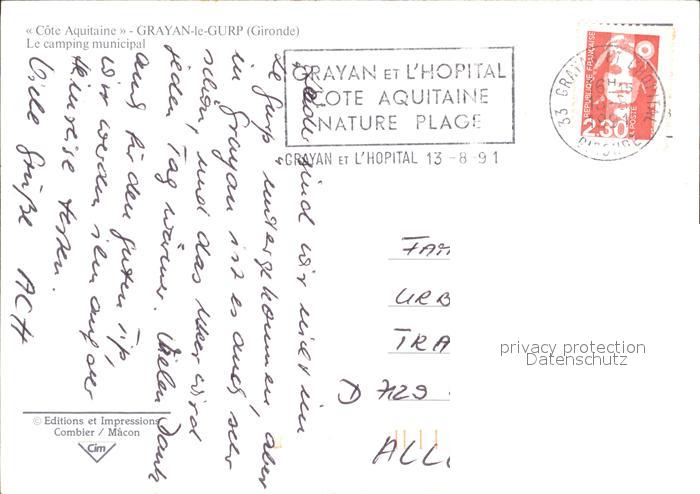 « Côte Aquitaine » - GRAYAN-le-GURP (Gironde)
Le camping municipal
GRAYAN ET L'HOPITAL
COTE AQUITAINE
NATURE PLAGE
GRAYAN ET L'HOPITAL 13-8-91
33 GRAYAN ET L'HOPITAL
GIRONDE
REPUBLIQUE FRANÇAISE
LA POSTE
2,30
Leider sind wir nicht im
Le Gurp untergekommen, aber
in Grayan ist es auch sehr
schön, und das Meer wird
jeden Tag wärmer. Vielen Dank
auch für den guten Tip,
wir werden ihn auf der
Heimreise testen.
Viele Grüße ACH
FAM
URB
TRA
D 729
ALL
privacy protection
Datenschutz
© Editions et Impressions
Combier / Mâcon
Cim